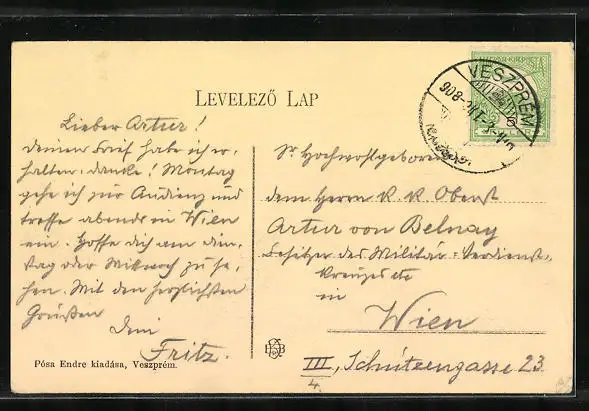 LEVELEZŐ LAP
Lieber Artur!
Deinen Brief habe ich er-
halten, danke! Montag
gehe ich zur Audienz und
treffe abends in Wien
ein. Hoffe dich am Diens-
tag oder Mittwoch zu se-
hen. Mit den herzlichsten
Grüßen
Dein
Fritz.
Pósa Endre kiadása, Veszprém.
VESZPRÉM
Sr. Hochwohlgeboren
dem Herrn K. K. Oberst
Artur von Belnay
Besitzer des Militär-Verdienst-
kreuzes etc
in
Wien
III, Schützengasse 23.
4.